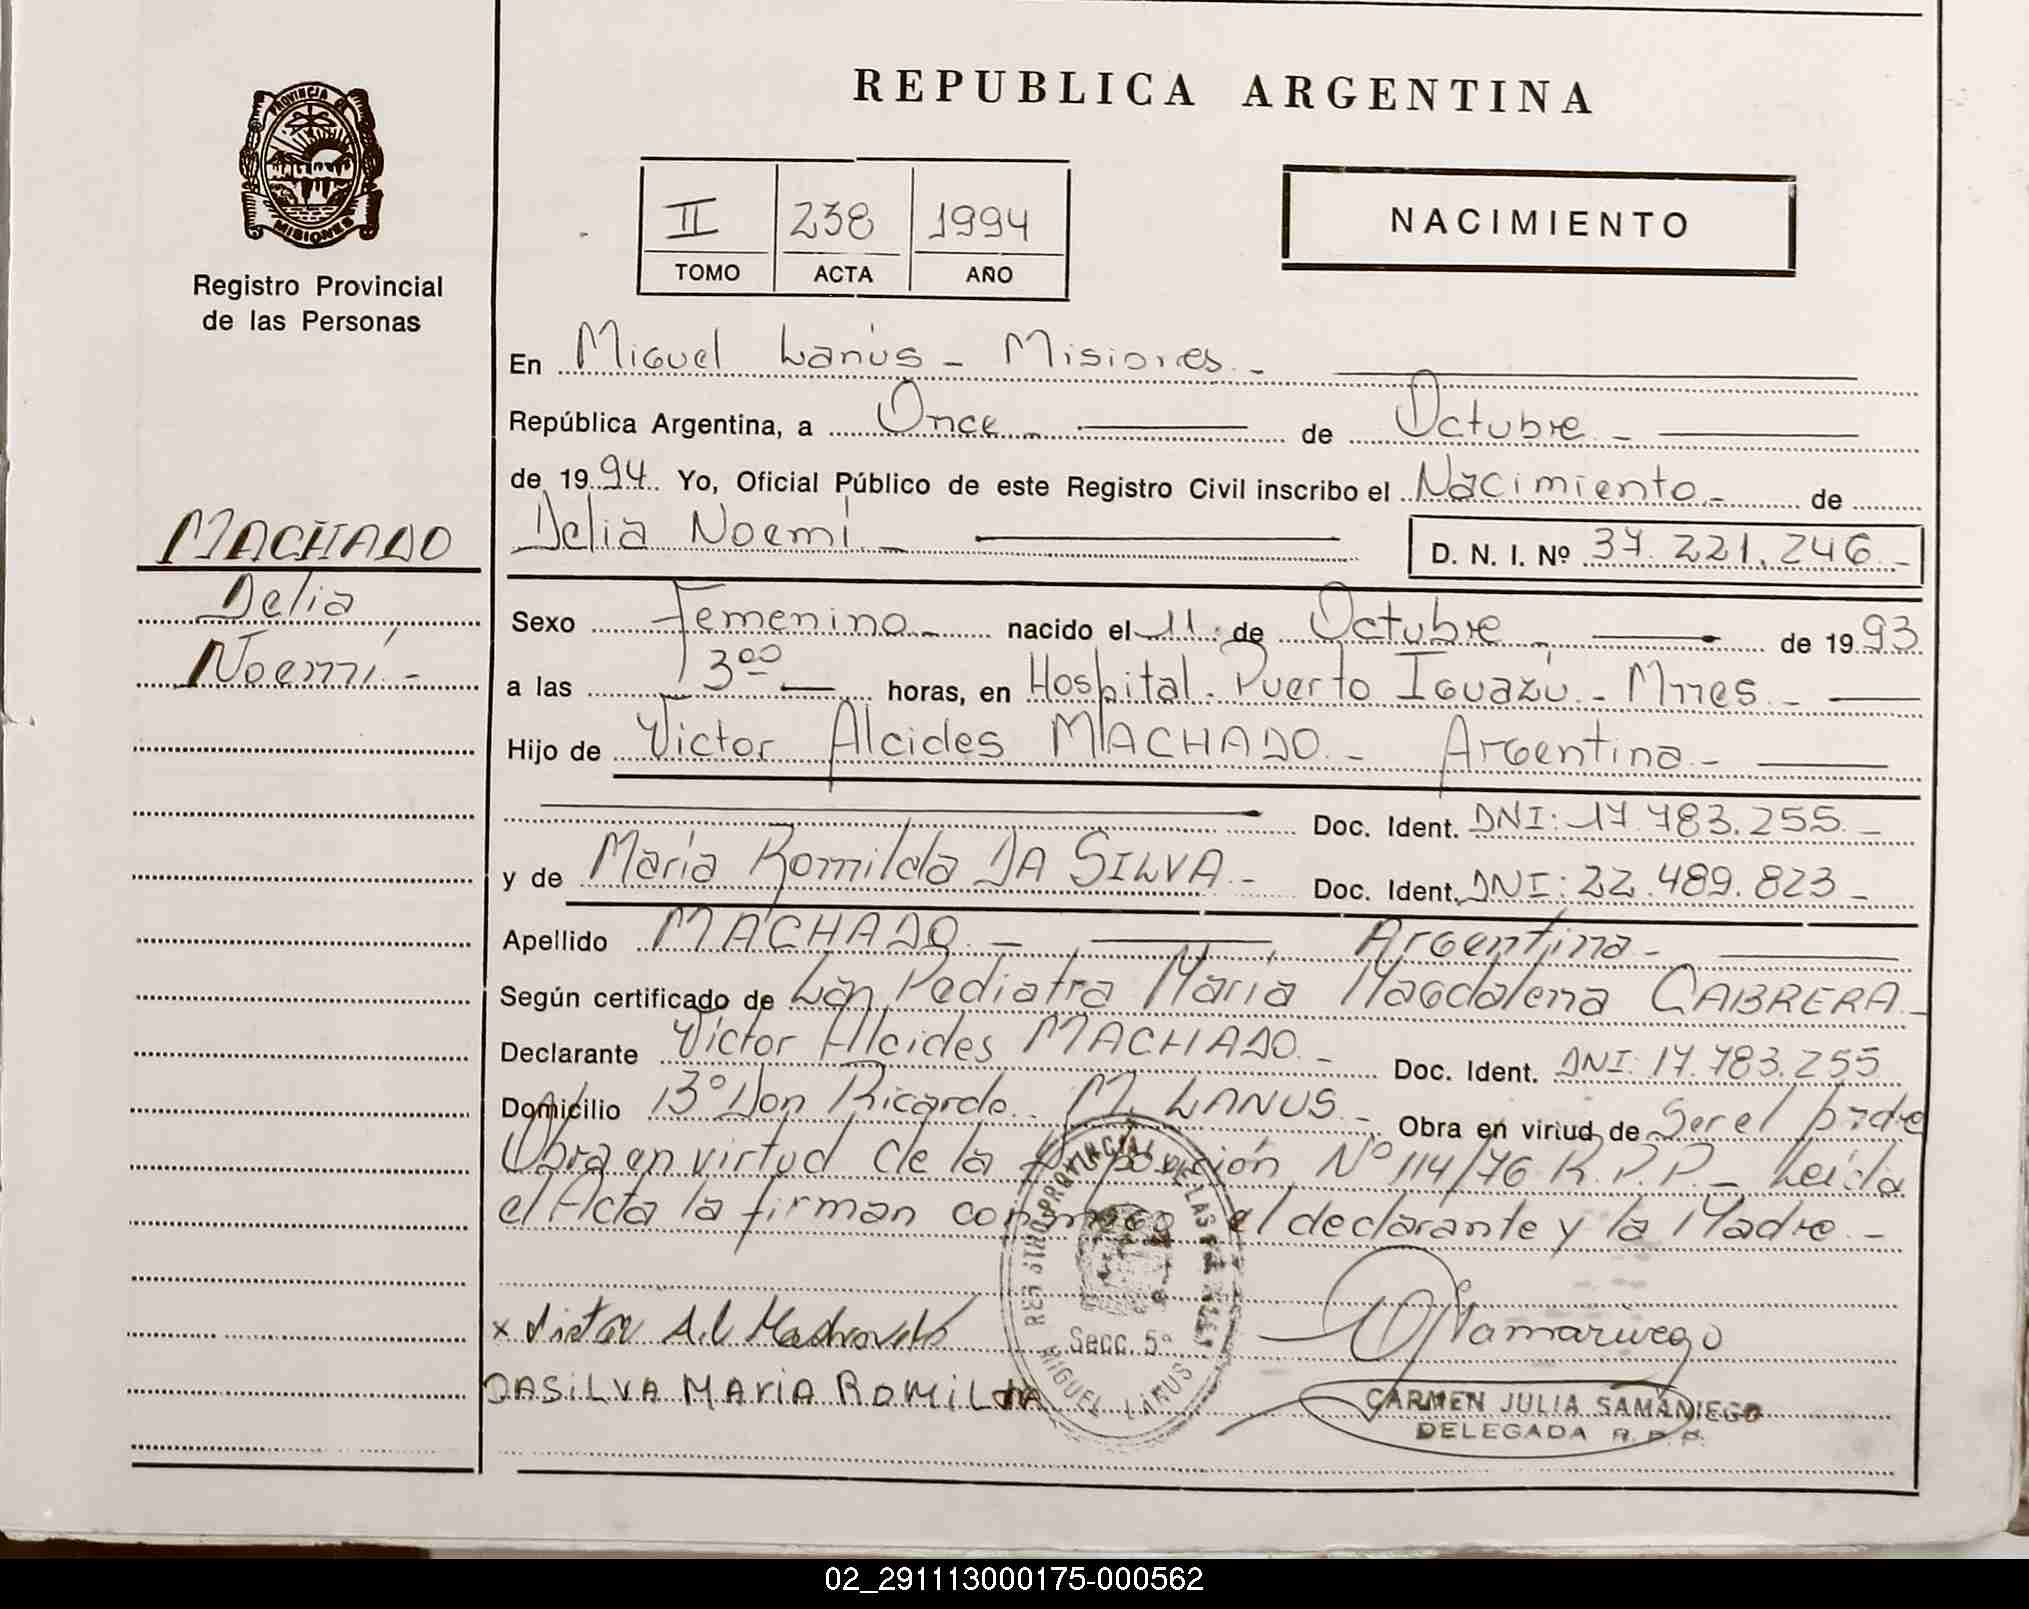 REPUBLICA ARGENTINA
PROVINCIA DE
MISIONES
Registro Provincial
de las Personas
II 238 1994
TOMO ACTA AÑO
NACIMIENTO
En Miguel Lanús - Misiones -
República Argentina, a Once - de Octubre -
de 1994 Yo, Oficial Público de este Registro Civil inscribo el Nacimiento - de
MACHADO
Delia
Noemí -
Delia Noemí - D. N. I. Nº 37.221.246 -
Sexo Femenino - nacido el 11 de Octubre - de 1993
a las 3⁰⁰ horas, en Hospital - Puerto Iguazú - Mnes -
Hijo de Victor Alcides MACHADO - Argentina -
Doc. Ident. DNI: 17.783.255 -
y de Maria Romilda DA SILVA - Doc. Ident. DNI: 22.489.823 -
Apellido MACHADO - Argentina -
Según certificado de La Pediatra Maria Magdalena CABRERA -
Declarante Victor Alcides MACHADO - Doc. Ident. DNI: 17.783.255
Domicilio Bº Don Ricardo - M. LANUS - Obra en virtud de Ser el padre
Obra en virtud de la Disposición Nº 114/76 R.P.P. - Leida
el Acta la firman conmigo el declarante y la Madre -
x Victor Al
DASILVA MARIA ROMILDA
REGISTRO PROVINCIAL DE LAS PERSONAS
Secc. 5ª
MIGUEL LANUS
CARMEN JULIA SAMANIEGO
DELEGADA R.P.P.
02_291113000175-000562